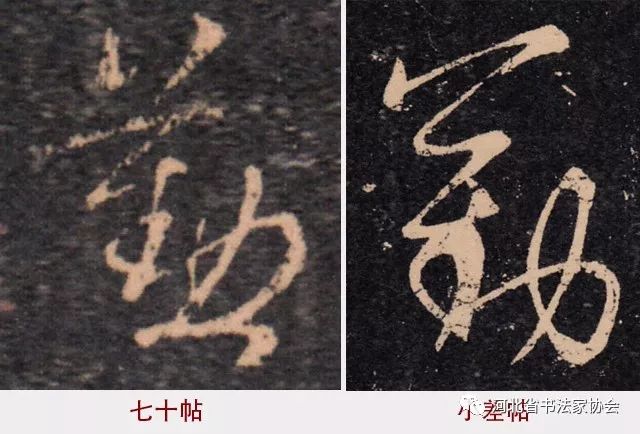 勤 勤
七十帖 小差帖
河北省书法家协会